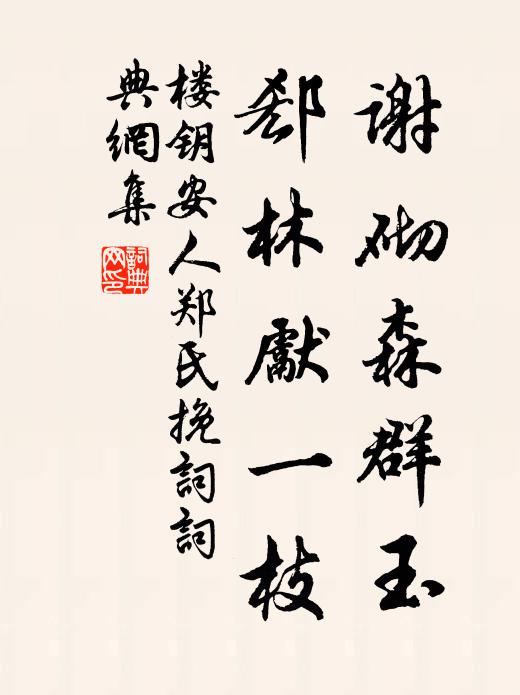 谢砌森群玉
郄林獻一枝
楼钥安人郑氏挽词詞
典網集
詞典网印